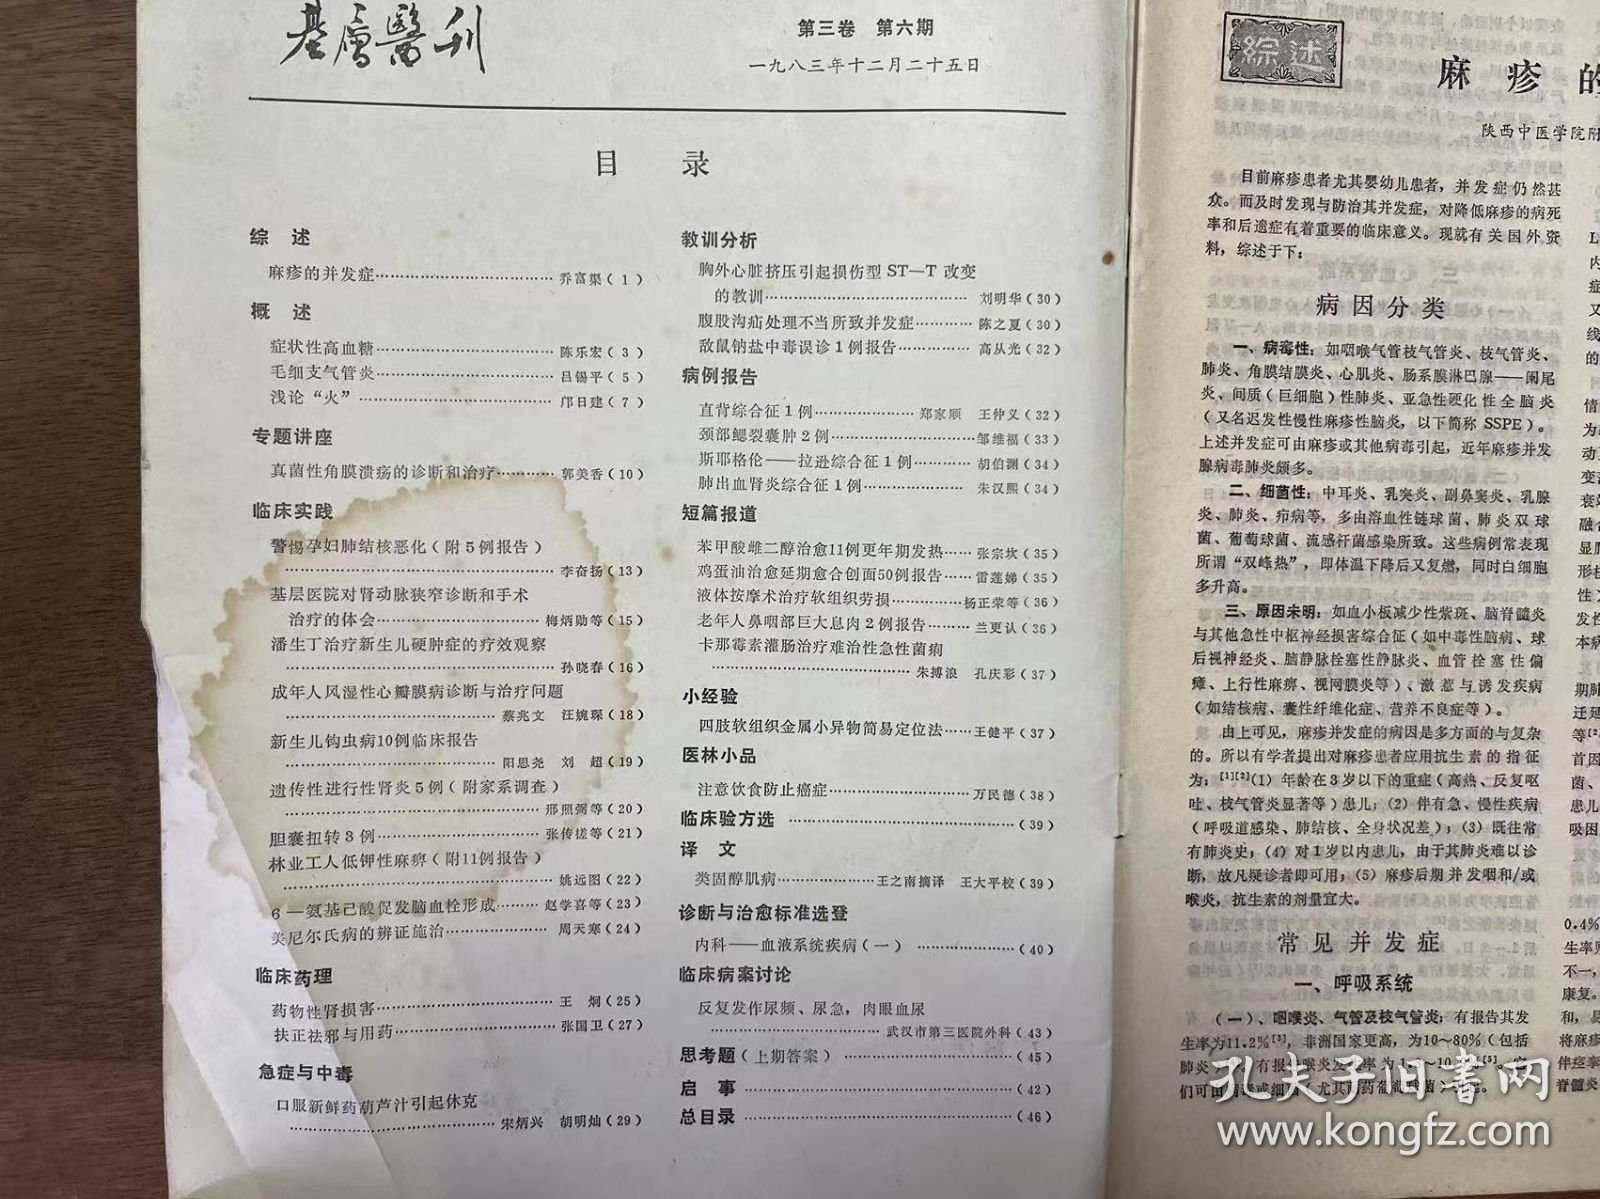 基层醫刊
第三卷 第六期
一九八三年十二月二十五日
目 录
综 述
麻疹的并发症…………………………乔富渠(1)
概 述
症状性高血糖…………………………陈乐宏(3)
毛细支气管炎…………………………吕锡平(5)
浅论“火”…………………………邝日建(7)
专题讲座
真菌性角膜溃疡的诊断和治疗…………郭美香(10)
临床实践
警惕孕妇肺结核恶化(附5例报告)
…………………………李奋扬(13)
基层医院对肾动脉狭窄诊断和手术
治疗的体会…………………………梅炳勋等(15)
潘生丁治疗新生儿硬肿症的疗效观察
…………………………孙晓春(16)
成年人风湿性心瓣膜病诊断与治疗问题
…………………………蔡兆文 汪婉琛(18)
新生儿钩虫病10例临床报告
…………………………阳思尧 刘 超(19)
遗传性进行性肾炎5例(附家系调查)
…………………………邢照弼等(20)
胆囊扭转3例…………………………张传槎等(21)
林业工人低钾性麻痹(附11例报告)
…………………………姚远图(22)
6—氨基己酸促发脑血栓形成………赵学喜等(23)
美尼尔氏病的辨证施治………………周天寒(24)
临床药理
药物性肾损害…………………………王 炯(25)
扶正祛邪与用药………………………张国卫(27)
急症与中毒
口服新鲜药葫芦汁引起休克
…………………………宋炳兴 胡明灿(29)
教训分析
胸外心脏挤压引起损伤型ST—T改变
的教训…………………………刘明华(30)
腹股沟疝处理不当所致并发症…………陈之夏(30)
敌鼠钠盐中毒误诊1例报告……………高从光(32)
病例报告
直背综合征1例………………郑家顺 王仲义(32)
颈部鳃裂囊肿2例……………………邹维福(33)
斯耶格伦——拉逊综合征1例…………胡伯渊(34)
肺出血肾炎综合征1例………………朱汉熙(34)
短篇报道
苯甲酸雌二醇治愈11例更年期发热……张宗坎(35)
鸡蛋油治愈延期愈合创面50例报告……雷莲娣(35)
液体按摩术治疗软组织劳损……………杨正荣等(36)
老年人鼻咽部巨大息肉2例报告………兰更认(36)
卡那霉素灌肠治疗难治性急性菌痢
…………………………朱搏浪 孔庆彩(37)
小经验
四肢软组织金属小异物简易定位法……王健平(37)
医林小品
注意饮食防止癌症……………………万民德(38)
临床验方选…………………………(39)
译 文
类固醇肌病………………王之南摘译 王大平校(39)
诊断与治愈标准选登
内科——血液系统疾病(一)………………(40)
临床病案讨论
反复发作尿频、尿急,肉眼血尿
…………………………武汉市第三医院外科(43)
思考题(上期答案)…………………………(45)
启 事…………………………(42)
总目录…………………………(46)
综述
麻 疹 的
陕西中医学院附
目前麻疹患者尤其婴幼儿患者,并发症仍然甚
众。而及时发现与防治其并发症,对降低麻疹的病死
率和后遗症有着重要的临床意义。现就有关国外资
料,综述于下:
病因分类
一、病毒性:如咽喉气管枝气管炎、枝气管炎、
肺炎、角膜结膜炎、心肌炎、肠系膜淋巴腺——阑尾
炎、间质(巨细胞)性肺炎、亚急性硬化性全脑炎
(又名迟发性慢性麻疹性脑炎,以下简称SSPE)。
上述并发症可由麻疹或其他病毒引起,近年麻疹并发
腺病毒肺炎颇多。
二、细菌性:中耳炎、乳突炎、副鼻窦炎、乳腺
炎、肺炎、疖病等,多由溶血性链球菌、肺炎双球
菌、葡萄球菌、流感杆菌感染所致。这些病例常表现
所谓“双峰热”,即体温下降后又复燃,同时白细胞
多升高。
三、原因未明:如血小板减少性紫斑、脑脊髓炎
与其他急性中枢神经损害综合征(如中毒性脑病、球
后视神经炎、脑静脉栓塞性静脉炎、血管栓塞性偏
瘫、上行性麻痹、视网膜炎等)、激惹与诱发疾病
(如结核病、囊性纤维化症、营养不良症等)。
由上可见,麻疹并发症的病因是多方面的与复杂
的。所以有学者提出对麻疹患者应用抗生素的指征
为:[1][2](1)年龄在3岁以下的重症(高热、反复呕
吐、枝气管炎显著等)患儿;(2)伴有急、慢性疾病
(呼吸道感染、肺结核、全身状况差);(3)既往常
有肺炎史;(4)对1岁以内患儿,由于其肺炎难以诊
断,故凡疑诊者即可用;(5)麻疹后期并发咽和/或
喉炎,抗生素的剂量宜大。
常见并发症
一、呼吸系统
(一)、咽喉炎、气管及枝气管炎:有报告其发
生率为11.2%[3],非洲国家更高,为10~80%(包括
孔夫子旧书网
www.kongfz.com